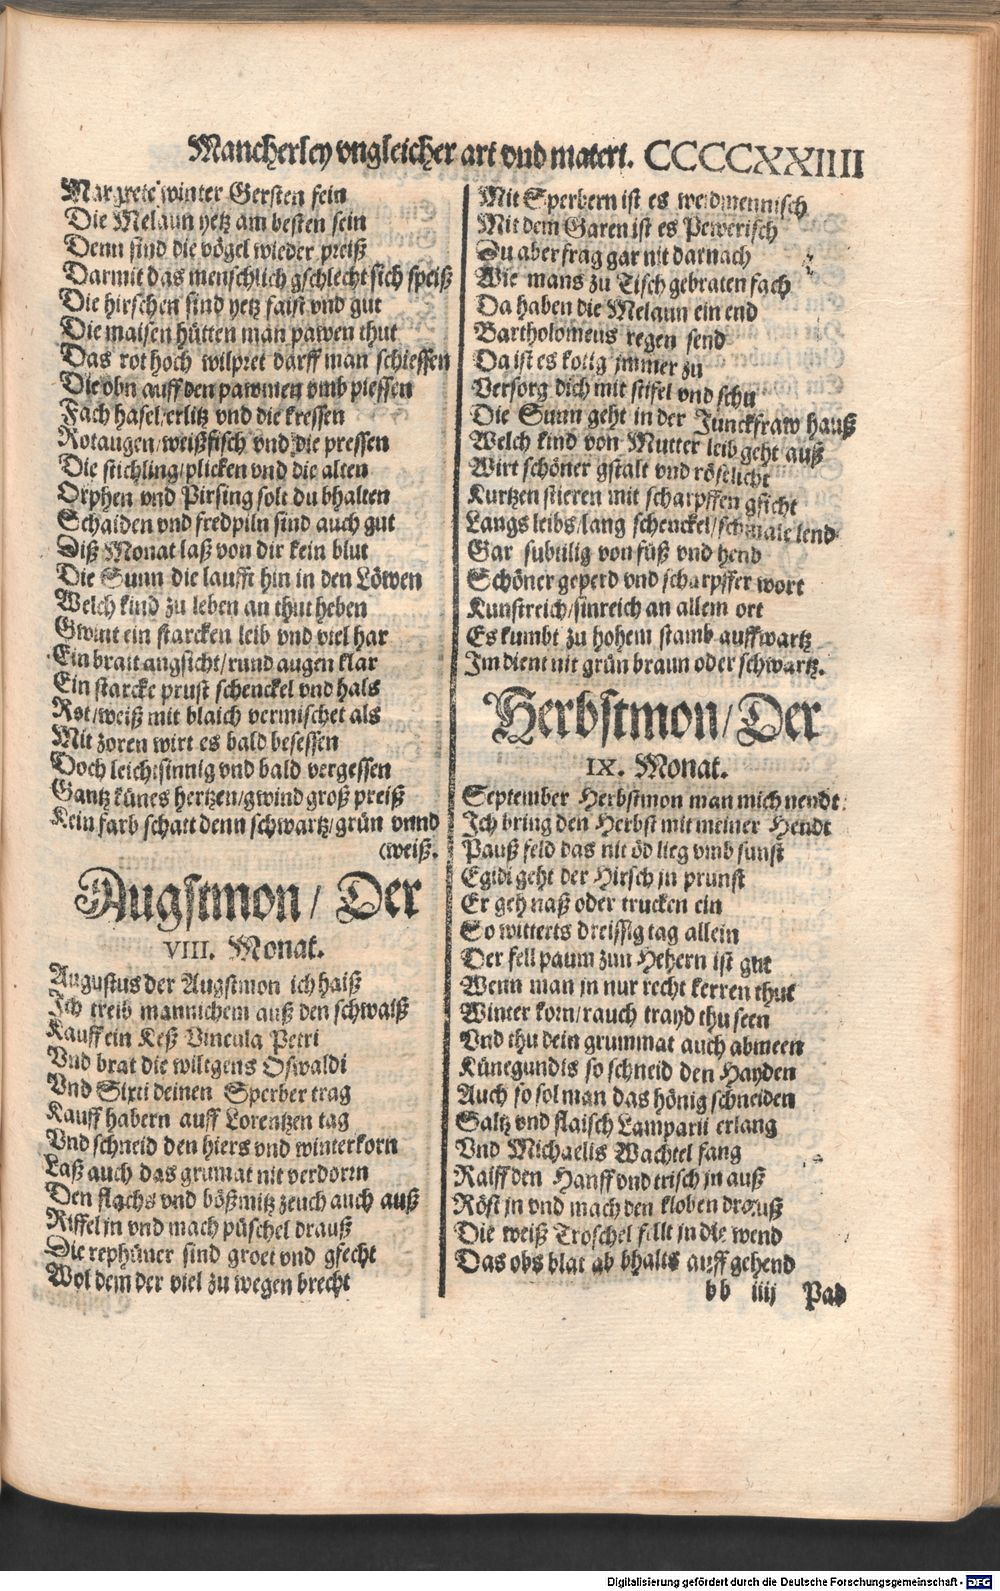 Mancherley vngleicher art vnd materi. CCCCCXXIIII
Margrete winter Gersten fein
Die Melaun yetz am besten sein
Denn sind die vögel wieder preiß
Darmit das menschlich gschlecht sich speiß
Die hirschen sind yetz faist vnd gut
Die maisen hütten man pawen thut
Das rot hoch wilpret darff man schiessen
Die obn auff den pawmen vmb piessen
Fach hasel/erlitz vnd die kressen
Rotaugen/weißfisch vnd die pressen
Die stichling/plicken vnd die alten
Orphen vnd Pirsing solt du bhalten
Schaiden vnd fredpiln sind auch gut
Diß Monat laß von dir kein blut
Die Sunn die laufft hin in den Löwen
Welch kind zu leben an thut heben
Gwint ein starcken leib vnd viel har
Ein brait angsicht/rund augen klar
Ein starcke prust schenckel vnd hals
Rot/weiß mit blaich vermischet als
Mit zoren wirt es bald besessen
Doch leichtsinnig vnd bald vergessen
Gantz künes hertzen/gwind groß preiß
Kein farb schatt denn schwartz/grün vnnd
(weiß.
Augstmon/ Der
VIII. Monat.
Augustus der Augstmon ich haiß
Ich treib mannichem auß den schwaiß
Kauff ein Keß Vincula Petri
Vnd brat die wiltgens Oswaldi
Vnd Sixti deinen Sperber trag
Kauff habern auff Lorentzen tag
Vnd schneid den hiers vnd winterkorn
Laß auch das grumat nit verdorrn
Den flachs vnd bößmitz zeuch auch auß
Riffel jn vnd mach püschel drauß
Die rephüner sind groet vnd gsecht
Wol dem der viel zu wegen brecht
Mit Sperbern ist es weidmennisch
Mit dem Garen ist es Pewerisch
Du aber frag gar nit darnach
Wie mans zu Tisch gebraten fach
Da haben die Melaun ein end
Bartholomeus regen send
Da ist es kotig jmmer zu
Versorg dich mit stifel vnd schu
Die Sunn geht in der Junckfraw hauß
Welch kind von Mutter leib geht auß
Wirt schöner gstalt vnd röstlicht
Kurtzen stieren mit scharpffen gsicht
Langs leibs/lang schenckel/schmale lend
Gar subtilig von füß vnd hend
Schöner geperd vnd scharpffer wort
Kunstreich/sinreich an allem ort
Es kumbt zu hohem stamb auffwartz
Im dient nit grün braun oder schwartz.
Herbstmon/Der
IX. Monat.
September Herbstmon man mich nendt
Ich bring den Herbst mit meiner Hendt
Pauß feld das nit öd lieg vmb sunst
Egidi geht der Hirsch jn prunst
Er geh naß oder trucken ein
So witterts dreissig tag allein
Der fell paum zun Hehern ist gut
Wenn man jn nur recht kerren thut
Winter korn/rauch trayd thu seen
Vnd thu dein grummat auch abmeen
Künegundis so schneid den Hayden
Auch so sol man das hönig schneiden
Saltz vnd flaisch Lamparti erlang
Vnd Michaelis Wachtel fang
Raiff den Hanff vnd trisch jn auß
Röst jn vnd mach den kloben drauß
Die weiß Troschel fellt jn die wend
Das obs blat ab bhalts auff gehend
bb iiij Pad
Digitalisierung gefördert durch die Deutsche Forschungsgemeinschaft - DFG